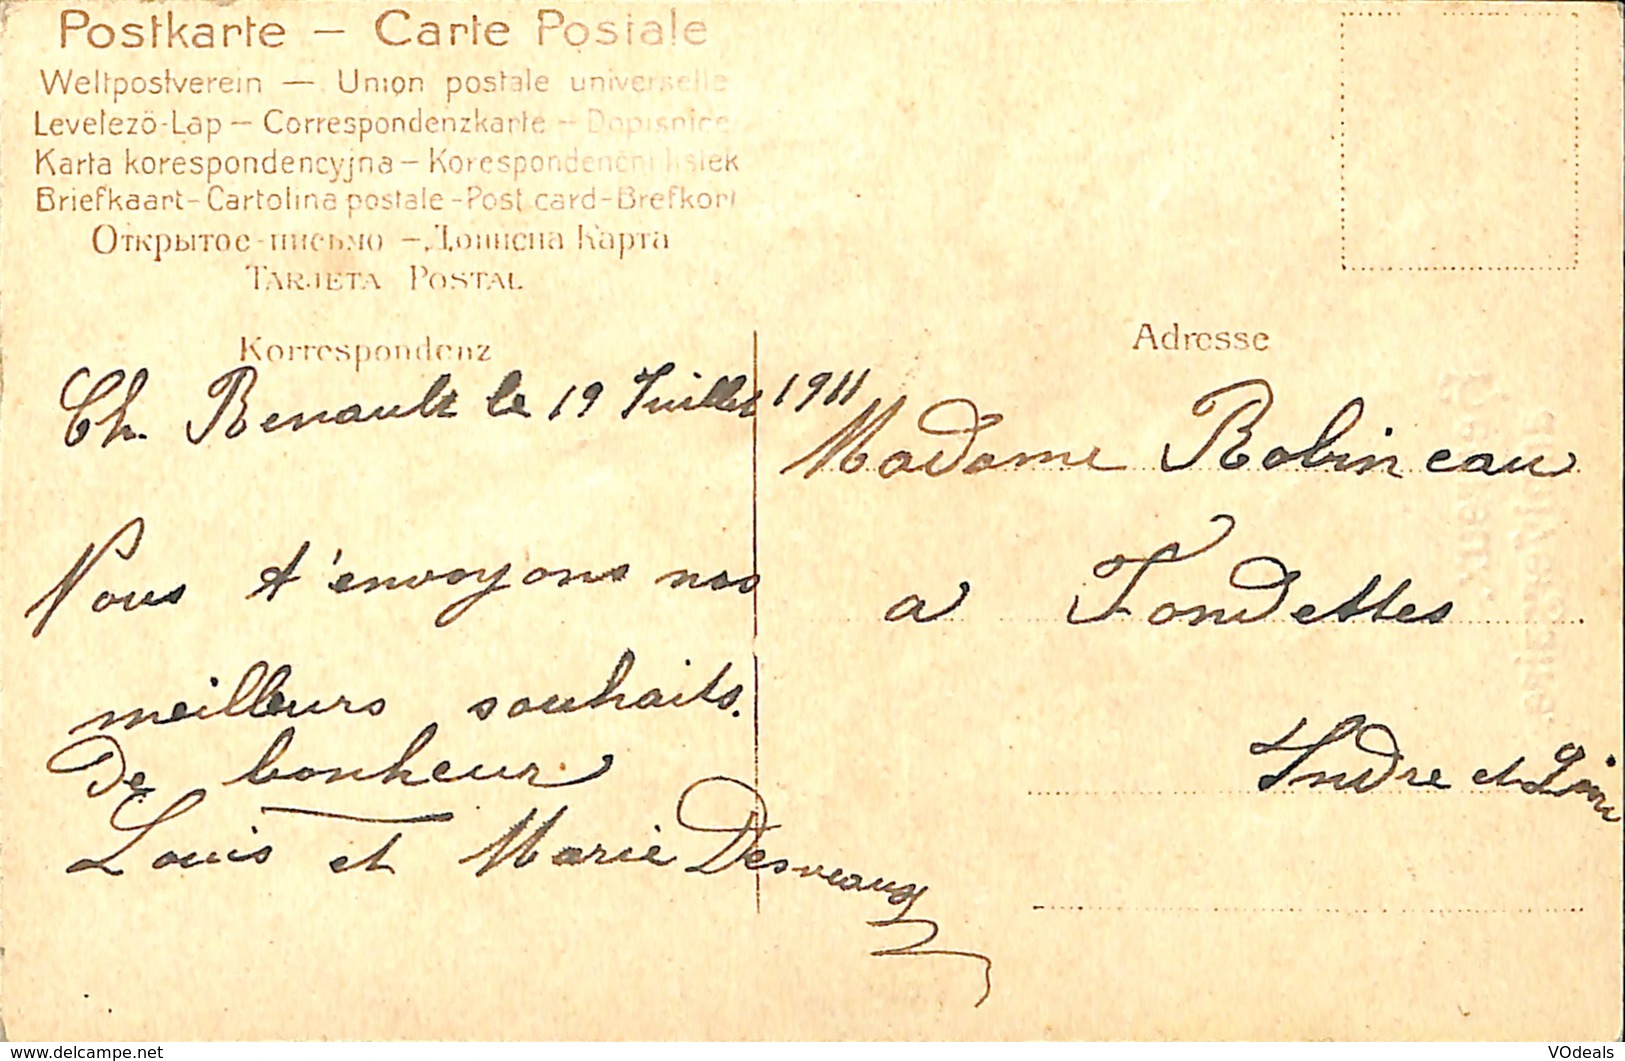 Postkarte — Carte Postale
Weltpostverein — Union postale universelle
Levelezö-Lap — Correspondenzkarte — Dopisnice
Karta korespondencyjna — Korespondenčni listek
Briefkaart - Cartolina postale - Post card - Brefkort
Открытое-письмо — Дописна Карта
TARJETA POSTAL
Korrespondenz
Ch. Renault le 19 Juillet 1911
Nous t'envoyons nos
meilleurs souhaits.
De bonheur
Louis et Marie Desveaux
Adresse
Madame Robineau
a Fondettes
Indre et Loire
www.delcampe.net
VOdeals